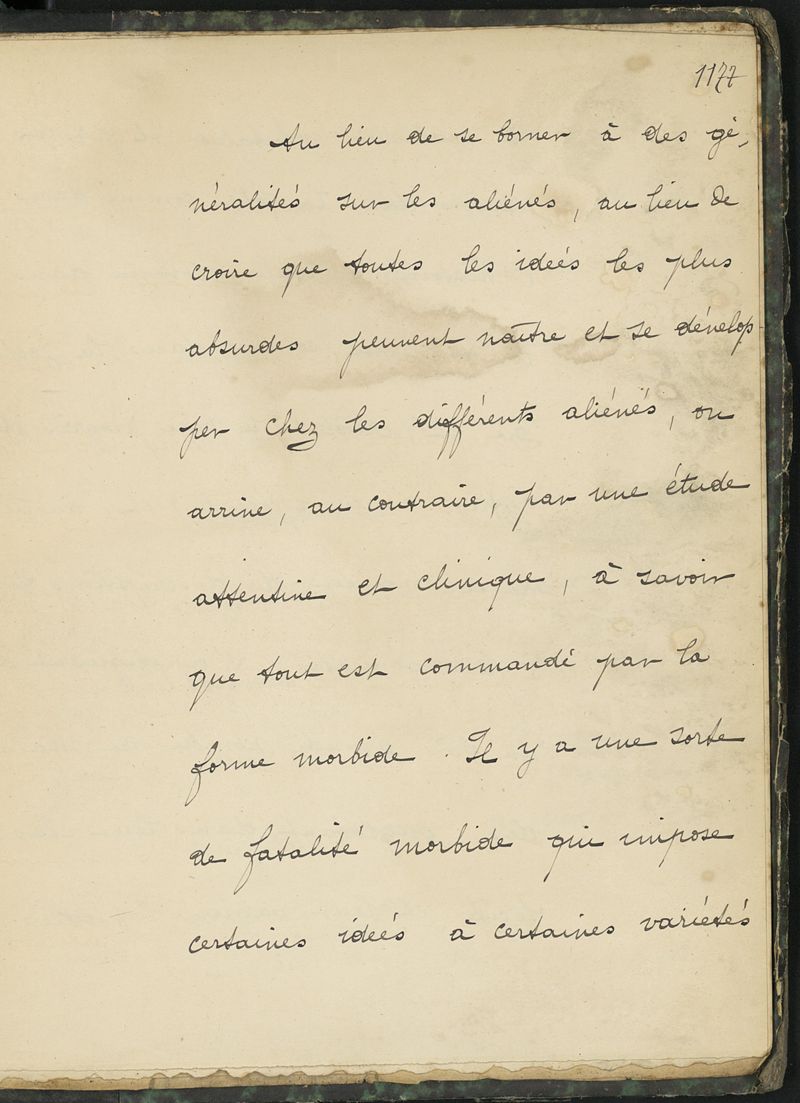 1177
Au lieu de se borner à des gé-
néralités sur les aliénés, au lieu de
croire que toutes les ideés les plus
absurdes peuvent naître et se dévelop-
per chez les différents aliénés, on
arrive, au contraire, par une étude
attentive et clinique, à savoir
que tout est commandé par la
forme morbide. Il y a une sorte
de fatalité morbide qui impose
certaines ideés à certaines variétés